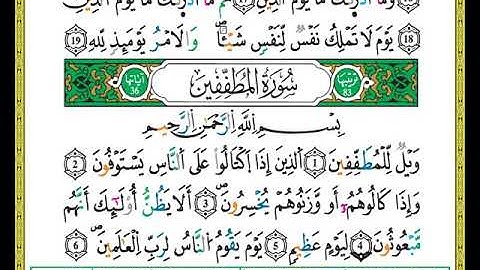 وَمَآ أَدْرَىٰكَ مَا يَوْمُ ٱلدِّينِ 17 ثُمَّ مَآ أَدْرَىٰكَ مَا يَوْمُ ٱلدِّينِ
18 يَوْمَ لَا تَمْلِكُ نَفْسٌ لِّنَفْسٍ شَيْـًٔا ۖ وَٱلْأَمْرُ يَوْمَئِذٍ لِّلَّهِ 19
ترتيبها 83 سُورَةُ المُطَفِّفِينَ آياتها 36
بِسْمِ ٱللَّهِ ٱلرَّحْمَٰنِ ٱلرَّحِيمِ
وَيْلٌ لِّلْمُطَفِّفِينَ 1 ٱلَّذِينَ إِذَا ٱكْتَالُوا۟ عَلَى ٱلنَّاسِ يَسْتَوْفُونَ 2
وَإِذَا كَالُوهُمْ أَو وَّزَنُوهُمْ يُخْسِرُونَ 3 أَلَا يَظُنُّ أُو۟لَٰٓئِكَ أَنَّهُم
مَّبْعُوثُونَ 4 لِيَوْمٍ عَظِيمٍ 5 يَوْمَ يَقُومُ ٱلنَّاسُ لِرَبِّ ٱلْعَٰلَمِينَ 6